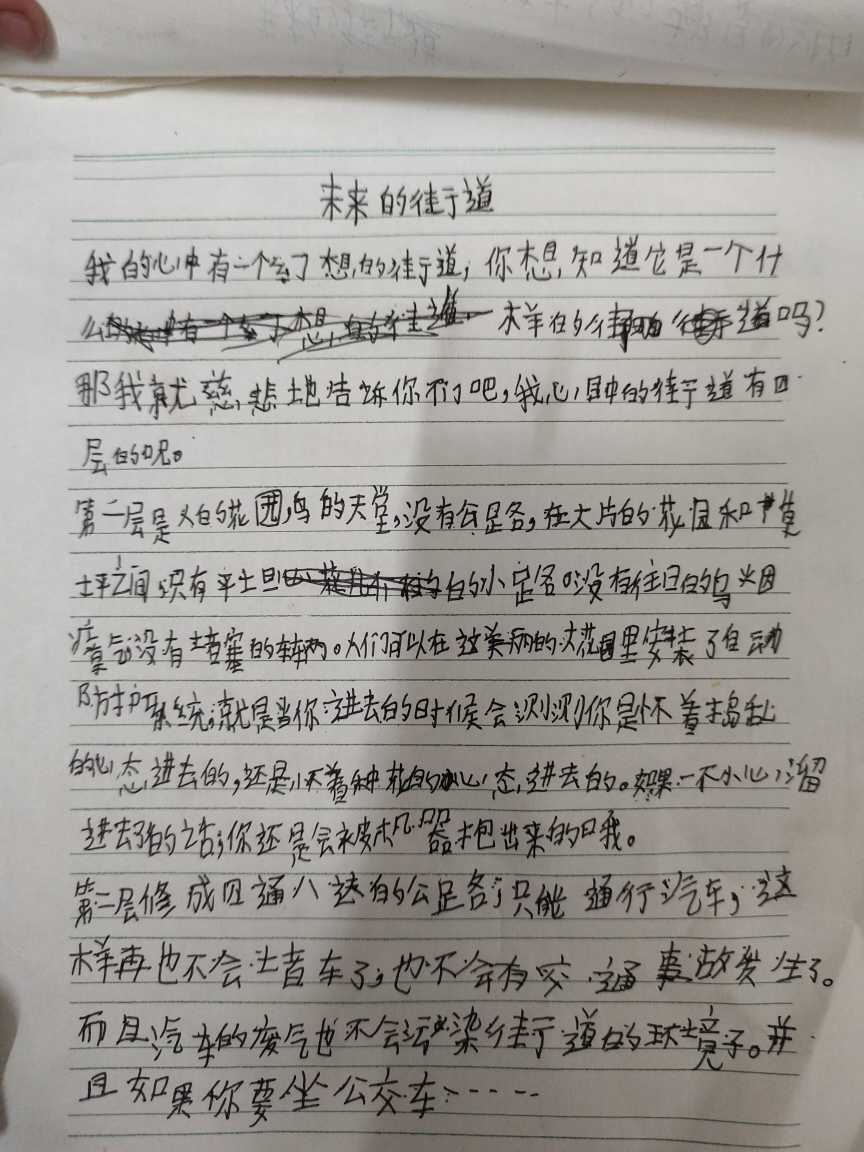 未来的街道
我的心中有一个幻想的街道，你想知道它是一个什
么样的街道吗？
那我就慈悲地告诉你们吧，我心目中的街道有四
层的呢。
第一层是人的花园，鸟的天堂，没有公路，在大片的花园和草
坪之间只有平坦的小路。没有往日的乌烟
瘴气没有堵塞的车辆。人们可以在这美丽的大花园里安装了自动
防护系统，就是当你进去的时候会测测你是怀着捣乱
的心态进去的，还是怀着种花的心态进去的。如果一不小心溜
进去了的话，你还是会被机器抱出来的哦。
第二层修成四通八达的公路，只能通行汽车，这
样再也不会堵车了，也不会有交通事故发生了。
而且汽车的废气也不会污染街道的环境了。并
且如果你要坐公交车……